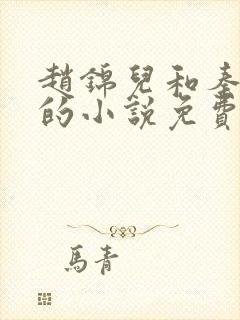 趙錦兒和秦
的小說免費
馬青